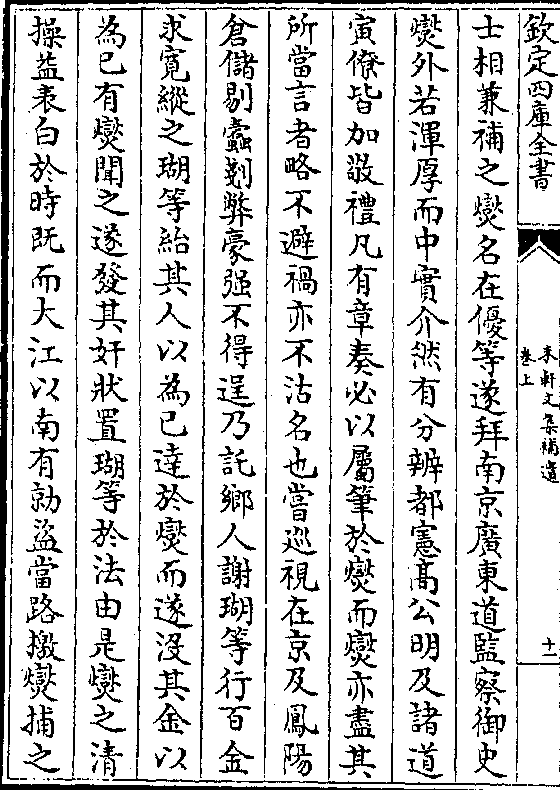 欽定四庫全書
耒軒文集補遺
卷上
十一
士相兼補之爕名在優等遂拜南京廣東道監察御史
爕外若渾厚而中實介然有分辨都憲高公明及諸道
寅僚皆加敬禮凡有章奏必以屬筆於爕而爕亦盡其
所當言者略不避禍亦不沽名也嘗巡視在京及鳳陽
倉儲剔蠹剗弊豪强不得逞乃託鄉人謝瑚等行百金
求寛縱之瑚等紿其人以為已達於爕而遂没其金以
為已有爕聞之遂發其奸狀置瑚等於法由是爕之清
操益表白於時既而大江以南有勍盜當路檄爕捕之